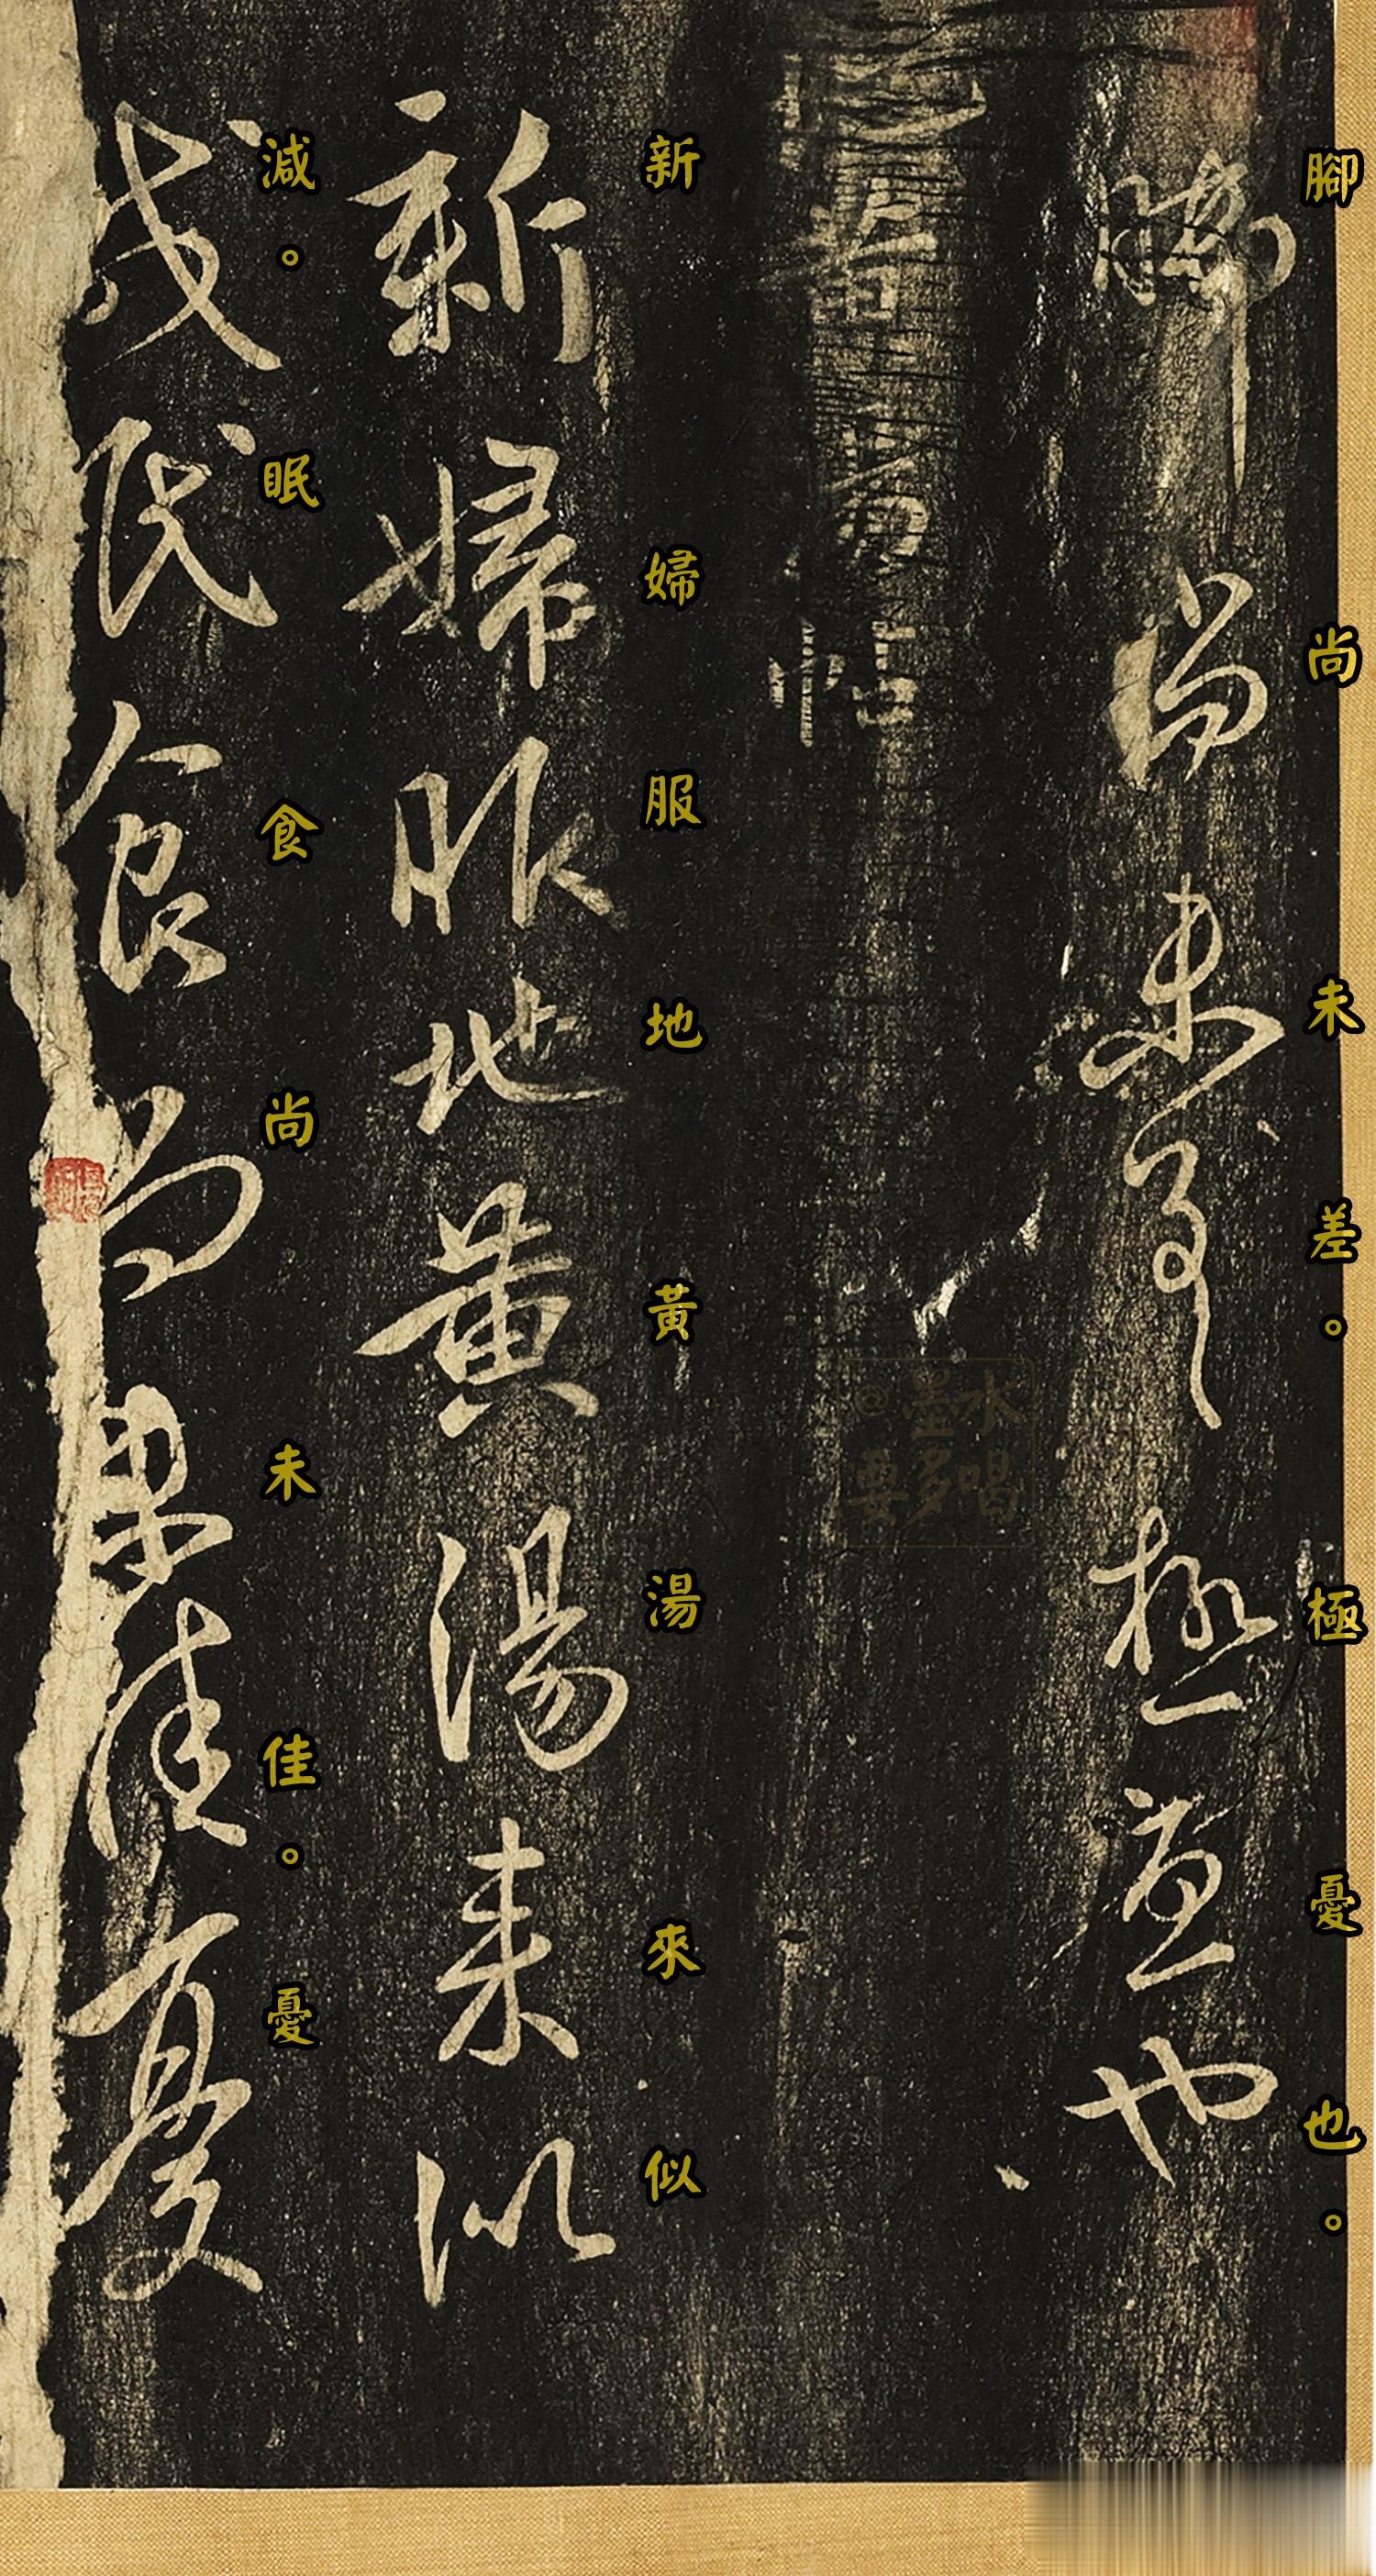 腳尚未差。極憂也。
腳尚未差極憂也
@墨水
要多喝
新婦服地黃湯來似
新婦服地黃湯来似
減。眠食尚未佳。憂
減眠食尚未佳憂